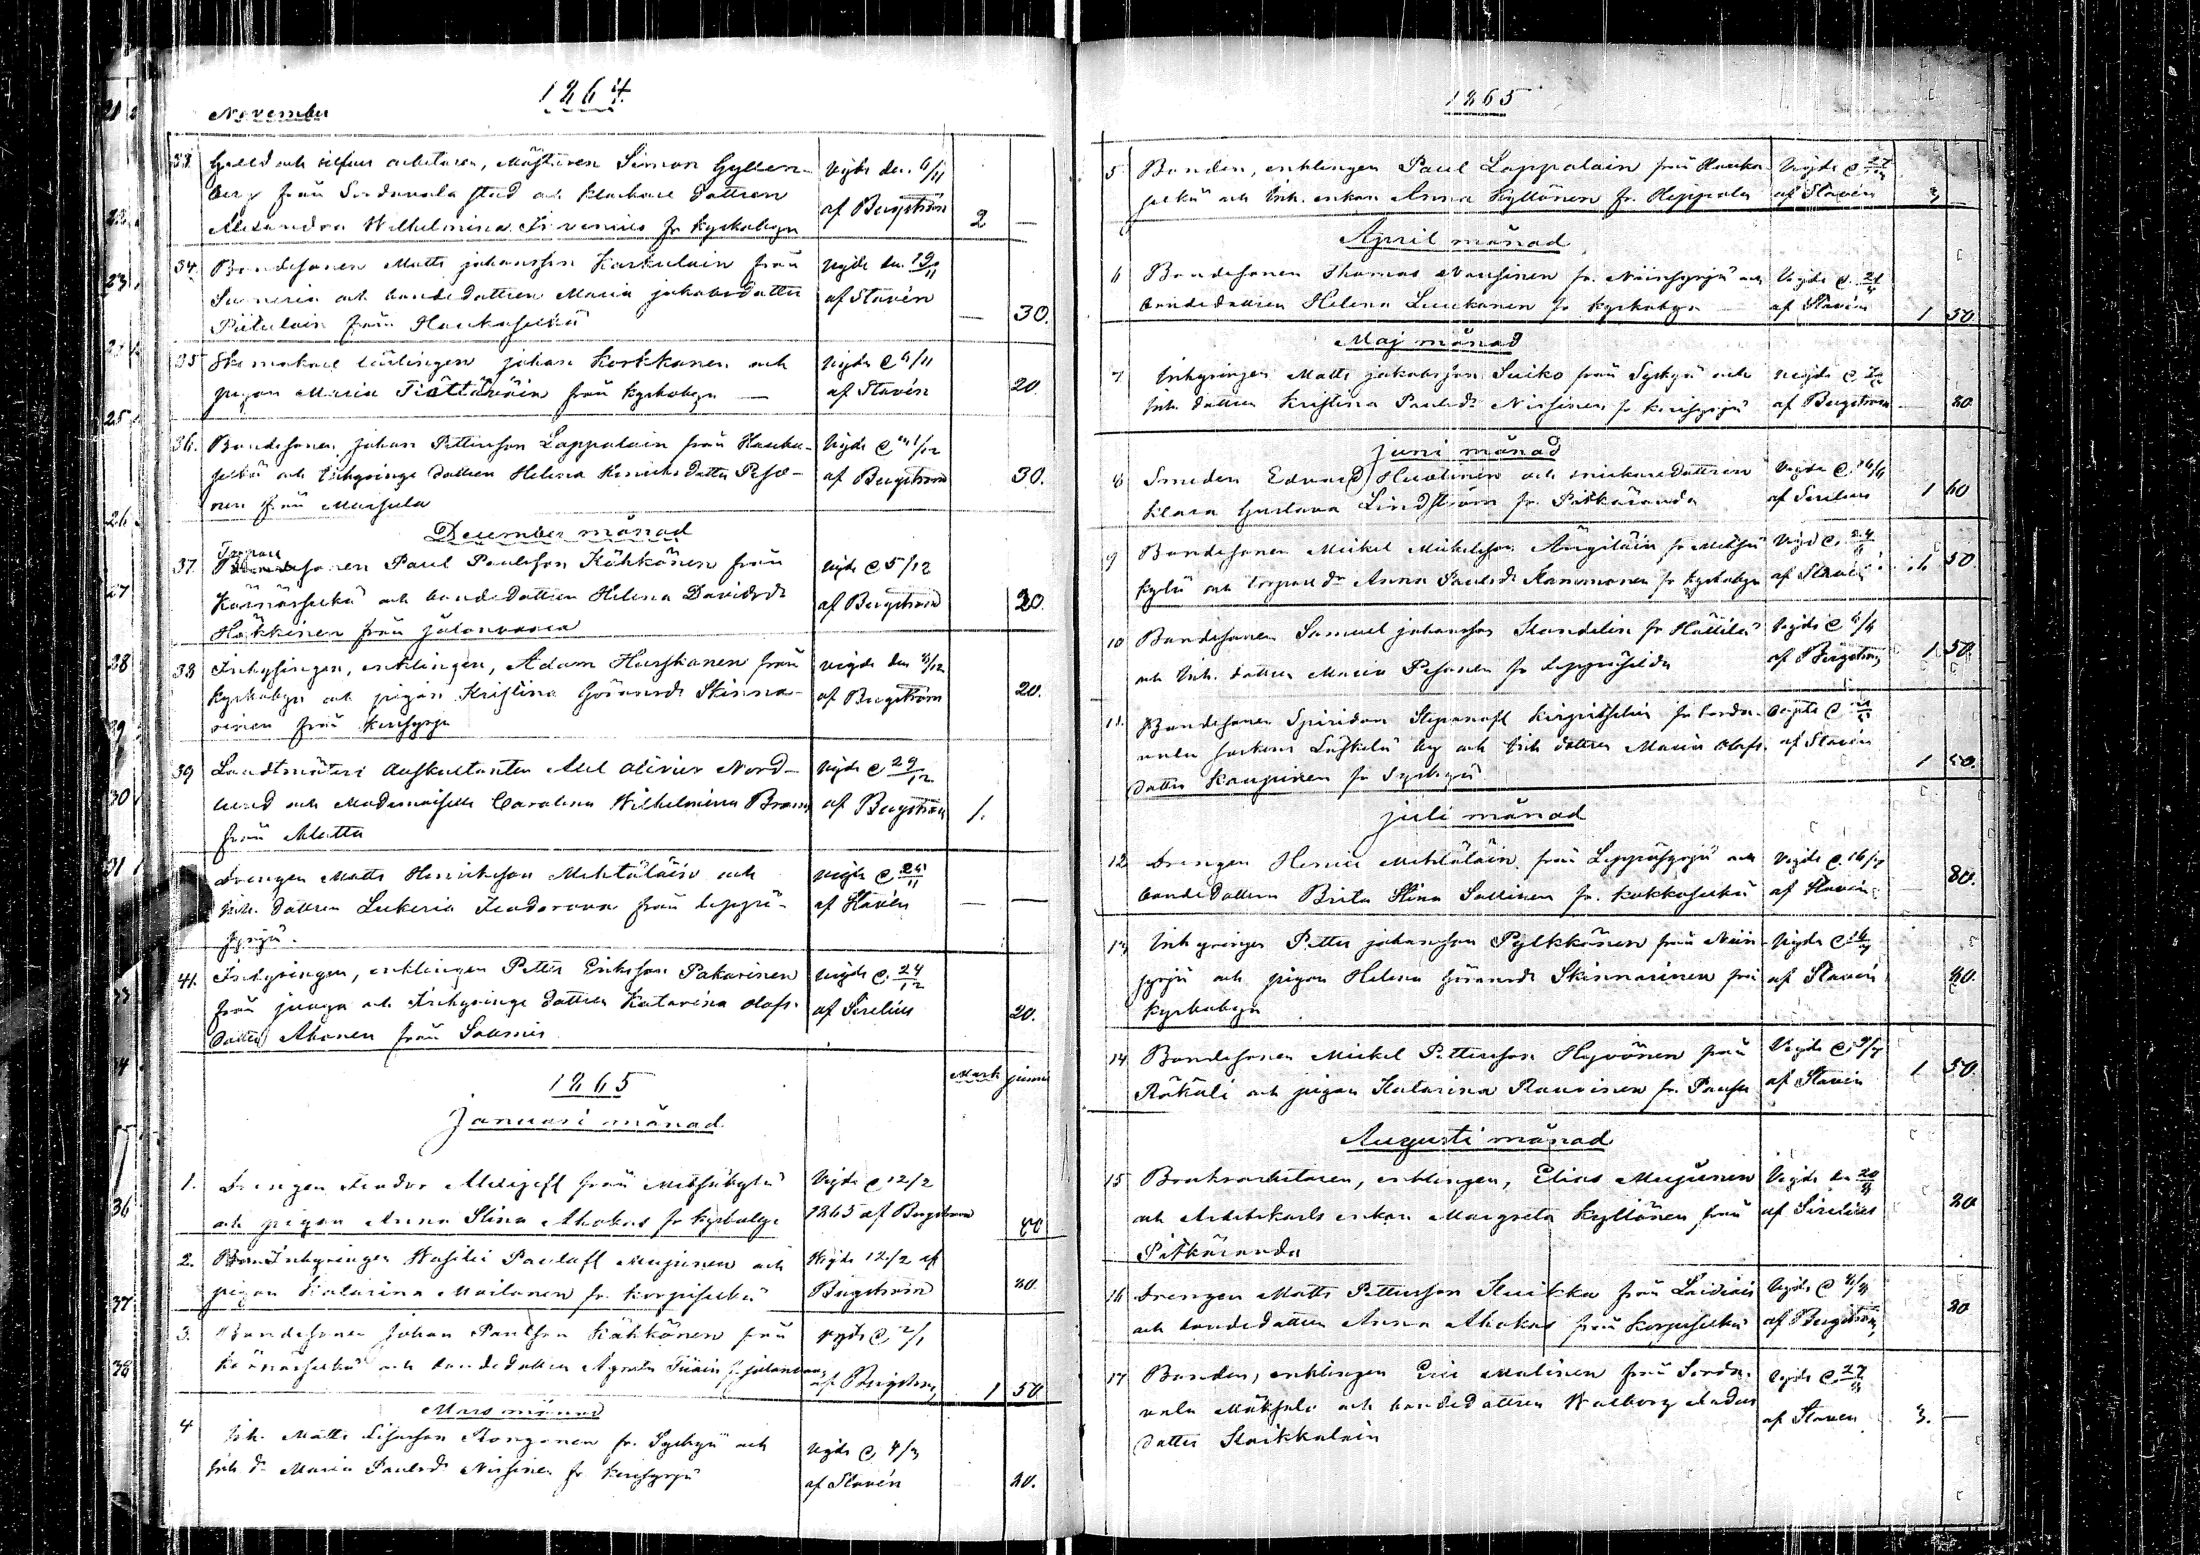 1864
November
33. Guld och silfver arbetaren, Mästaren Simon Gyllen-
berg från Sordavala stad och klockare dottren
Alexandra Wilhelmina Sirenius fr Kyrkobyn
vigde den 6/11
af Bergström
2 —
34. Bondesonen Matts Johansson Karkulain från
Suneria och bondedottren Maria Jakobsdotter
Piitulain från Haukaselkä
vigde den 19/11
af Stavén
— 30.
35 Skomakare lärlingen Johan Korkkanen och
pigan Maria Tiättäväin från Kyrkobyn —
vigde d 6/11
af Stavén
20
36. Bondesonen Johan Pettersson Lappalain från Hauka-
selkä och Inhysinge dottren Helena Henriksdotter Peso-
nen från Mursula
Vigde d 1/12
af Bergström
30.
December månad
37. Torpare
sonen Paul Paulsson Kähkönen från
Käsnäselkä och bondedottren Helena Davidsdr
Häkkinen från Jalonvaara
vigde d 5/12
af Bergström
20.
38 Inhysingen, enklingen, Adam Hurskanen från
Kyrkobyn och pigan Kristina Göransdr Skinna-
rinen från Kirisyrjä
vigde den 8/12
af Bergström
20.
39 Landtmäteri Auskultanten Axel Olivier Nord-
lund och Mademoiselle Carolina Wilhelmina Bram
från Alatta
vigde d 29/12
af Bergström
1.
Drengen Matts Henriksson Mehtäläin och
Inh. dottren Lukeria Feodorovna från Leppä-
syrjä.
vigde d 25/11
af Stavén
— —
41. Inhysingen, enklingen Petter Eriksson Pakarinen
från Juuga och Inhysinge dottren Katarina Olofs-
dotter Ahonen från Soanis
vigde d. 24/12
af Sirelius
20.
1865
Mark penni
Januari månad
1. Drengen Feodor Alexejeff från Metsäkylä
och pigan Anna Stina Ahokas fr Kyrkobyn
Vigde d 12/2
1865 af Bergström
80
2. Inhysingen Wasilei Pavloff Mujunen och
pigan Katarina Mailanen fr. Korpiselkä
Vigde 12/2 af
Bergström
20
3. Bondesonen Johan Paulsson Kähkönen från
Käsnäselkä och bondedottren Agneta Tiäin fr Jalonvaara
vigde d 2/1
af Bergström
1 50
Mars månad
4 Inh. Matts Rongonen fr. Syskyä och
Inh dr Maria Paulsdr Nissinen fr Kirisyrjä
vigde d 4/3
af Stavén
20.
1865
5 Bonden, enklingen Paul Lappalain från Hauka-
selkä och Inh. enkan Anna Kyllönen fr. Heppala
Vigde d 27/
af Stavén
3 —
April månad
6 Bondesonen Thomas Nousinen fr. Niinisyrjä och
bondedottren Helena Luukanen fr Kyrkobyn
Vigde d. 21/4
af Stavén
1 50
Maj månad
7 Inhysingen Matts Jakobsson Suiko från Syskyä och
Inh. dottren Kristina Paulsdr Nissinen fr Kirisyrjä
vigde d
af Bergström
20
Juni månad
8 Smeden Edvard Huolinen och snickaredottren
Klara Gustava Lindström fr. Pitkäranda
Vigde d. 16/6
af Sirelius
1 60
9 Bondesonen Mickel Mickelsson Ängiläin fr Metsä
kylä och torpare dr Anna Paulsdr Hammonen fr Kyrkobyn
Vigd d. 24/6
af Stavén
1 50.
10 Bondesonen Samuel Johansson Standelin fr Hättilä
och Inh. dottren Maria Pesonen fr Leppäsilda
Vigde d 6/6
af Bergström
1 50
11. Bondesonen Spiridon Stepanoff Kirpitschin fr Sorda-
vala socken Läskelä by och Inh dottren Maria Olofs-
dotter Kaupinen fr Syskyä
vigde d
af Stavén
1 50.
Juli månad
12 Drengen Henric Mehtäläin från Leppäsyrjä och
bondedottren Brita Stina Sallinen fr. Kokkoselkä
Vigde d. 16/7
af Stavén
80.
13 Inhysingen Petter Johansson Pylkkänen från Niini-
syrjä och pigan Helena Göransdr Skinnarinen från
Kyrkobyn
Vigde d 16/7
af Stavén
20.
14 Bondesonen Mickel Pettersson Hyvönen från
Räkäli och pigan Katarina Rauvinen fr.
Vigde d. 9/7
af Stavén
1 50.
Augusti månad
15 Bruksarbetaren, enklingen, Elias Mujunen
och Arbetskarls enkan Margreta Kyllönen från
Pitkäranda
Vigde den 20/8
af Sirelius
20
16 Drengen Matts Pettersson Kuikka från
och bondedottren Anna Ahokas från Korpiselkä
Vigde d 6/8
af Bergström
20
17 Bonden, enklingen Eric Malinen från Sorda-
vala och bondedottren Walborg
dotter Stoikkalain
vigde d. 27/8
af Staven
3. —